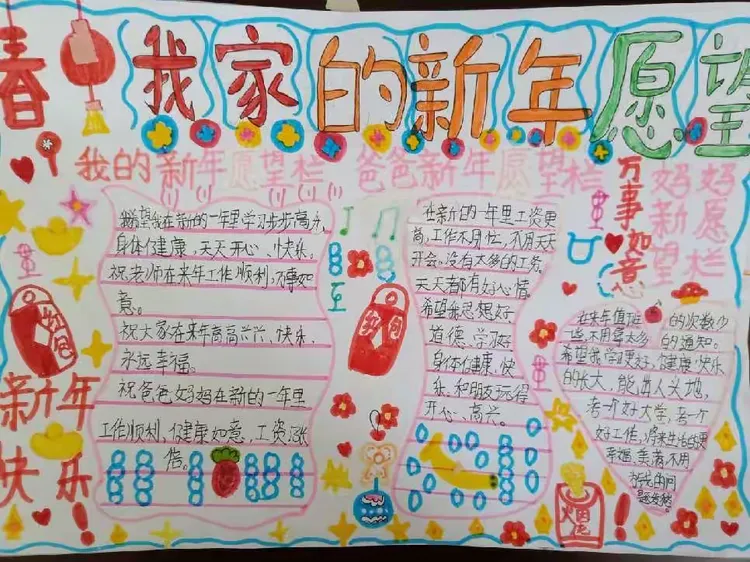 春
我家的新年愿望
我的新年愿望栏
爸爸新年愿望栏
万事如意
妈妈
新年
愿望栏
我希望我在新的一年里学习步步高升，
身体健康，天天开心、快乐。
祝老师在来年工作顺利，万事如
意。
祝大家在来年高高兴兴、快乐，
永远幸福。
祝爸爸妈妈在新的一年里
工作顺利，健康如意，工资涨
倍。
红包
新年
快乐
在新的一年里工资更
高，工作不用忙，不用天天
开会。没有太多的工务。
天天都有好心情。
希望我思想好
道德、学习好
身体健康、快
乐，和朋友玩得
开心、高兴。
红包
在来年值班的次数少
一些，不用写太多的通知。
希望我学习更好，健康快乐
的长大，能出人头地，
考一个好大学，考一个
好工作，将来生活更
幸福，美满不用